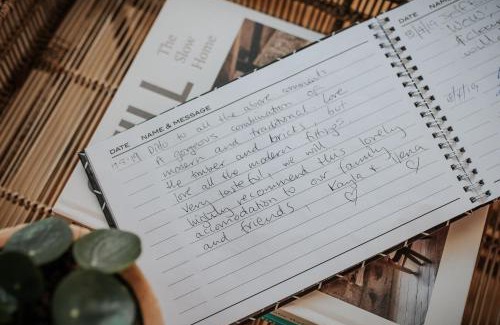 The
Slow
Home
ILL
DATE NAME & MESSAGE
Ditto to all the above comments
A gorgeous combination of
modern and traditional. Love
the timber and bricks, but
love all the modern fittings
very tasteful, we will
highly recommend this lovely
accomodation to our family
and friends Kayla &
DATE